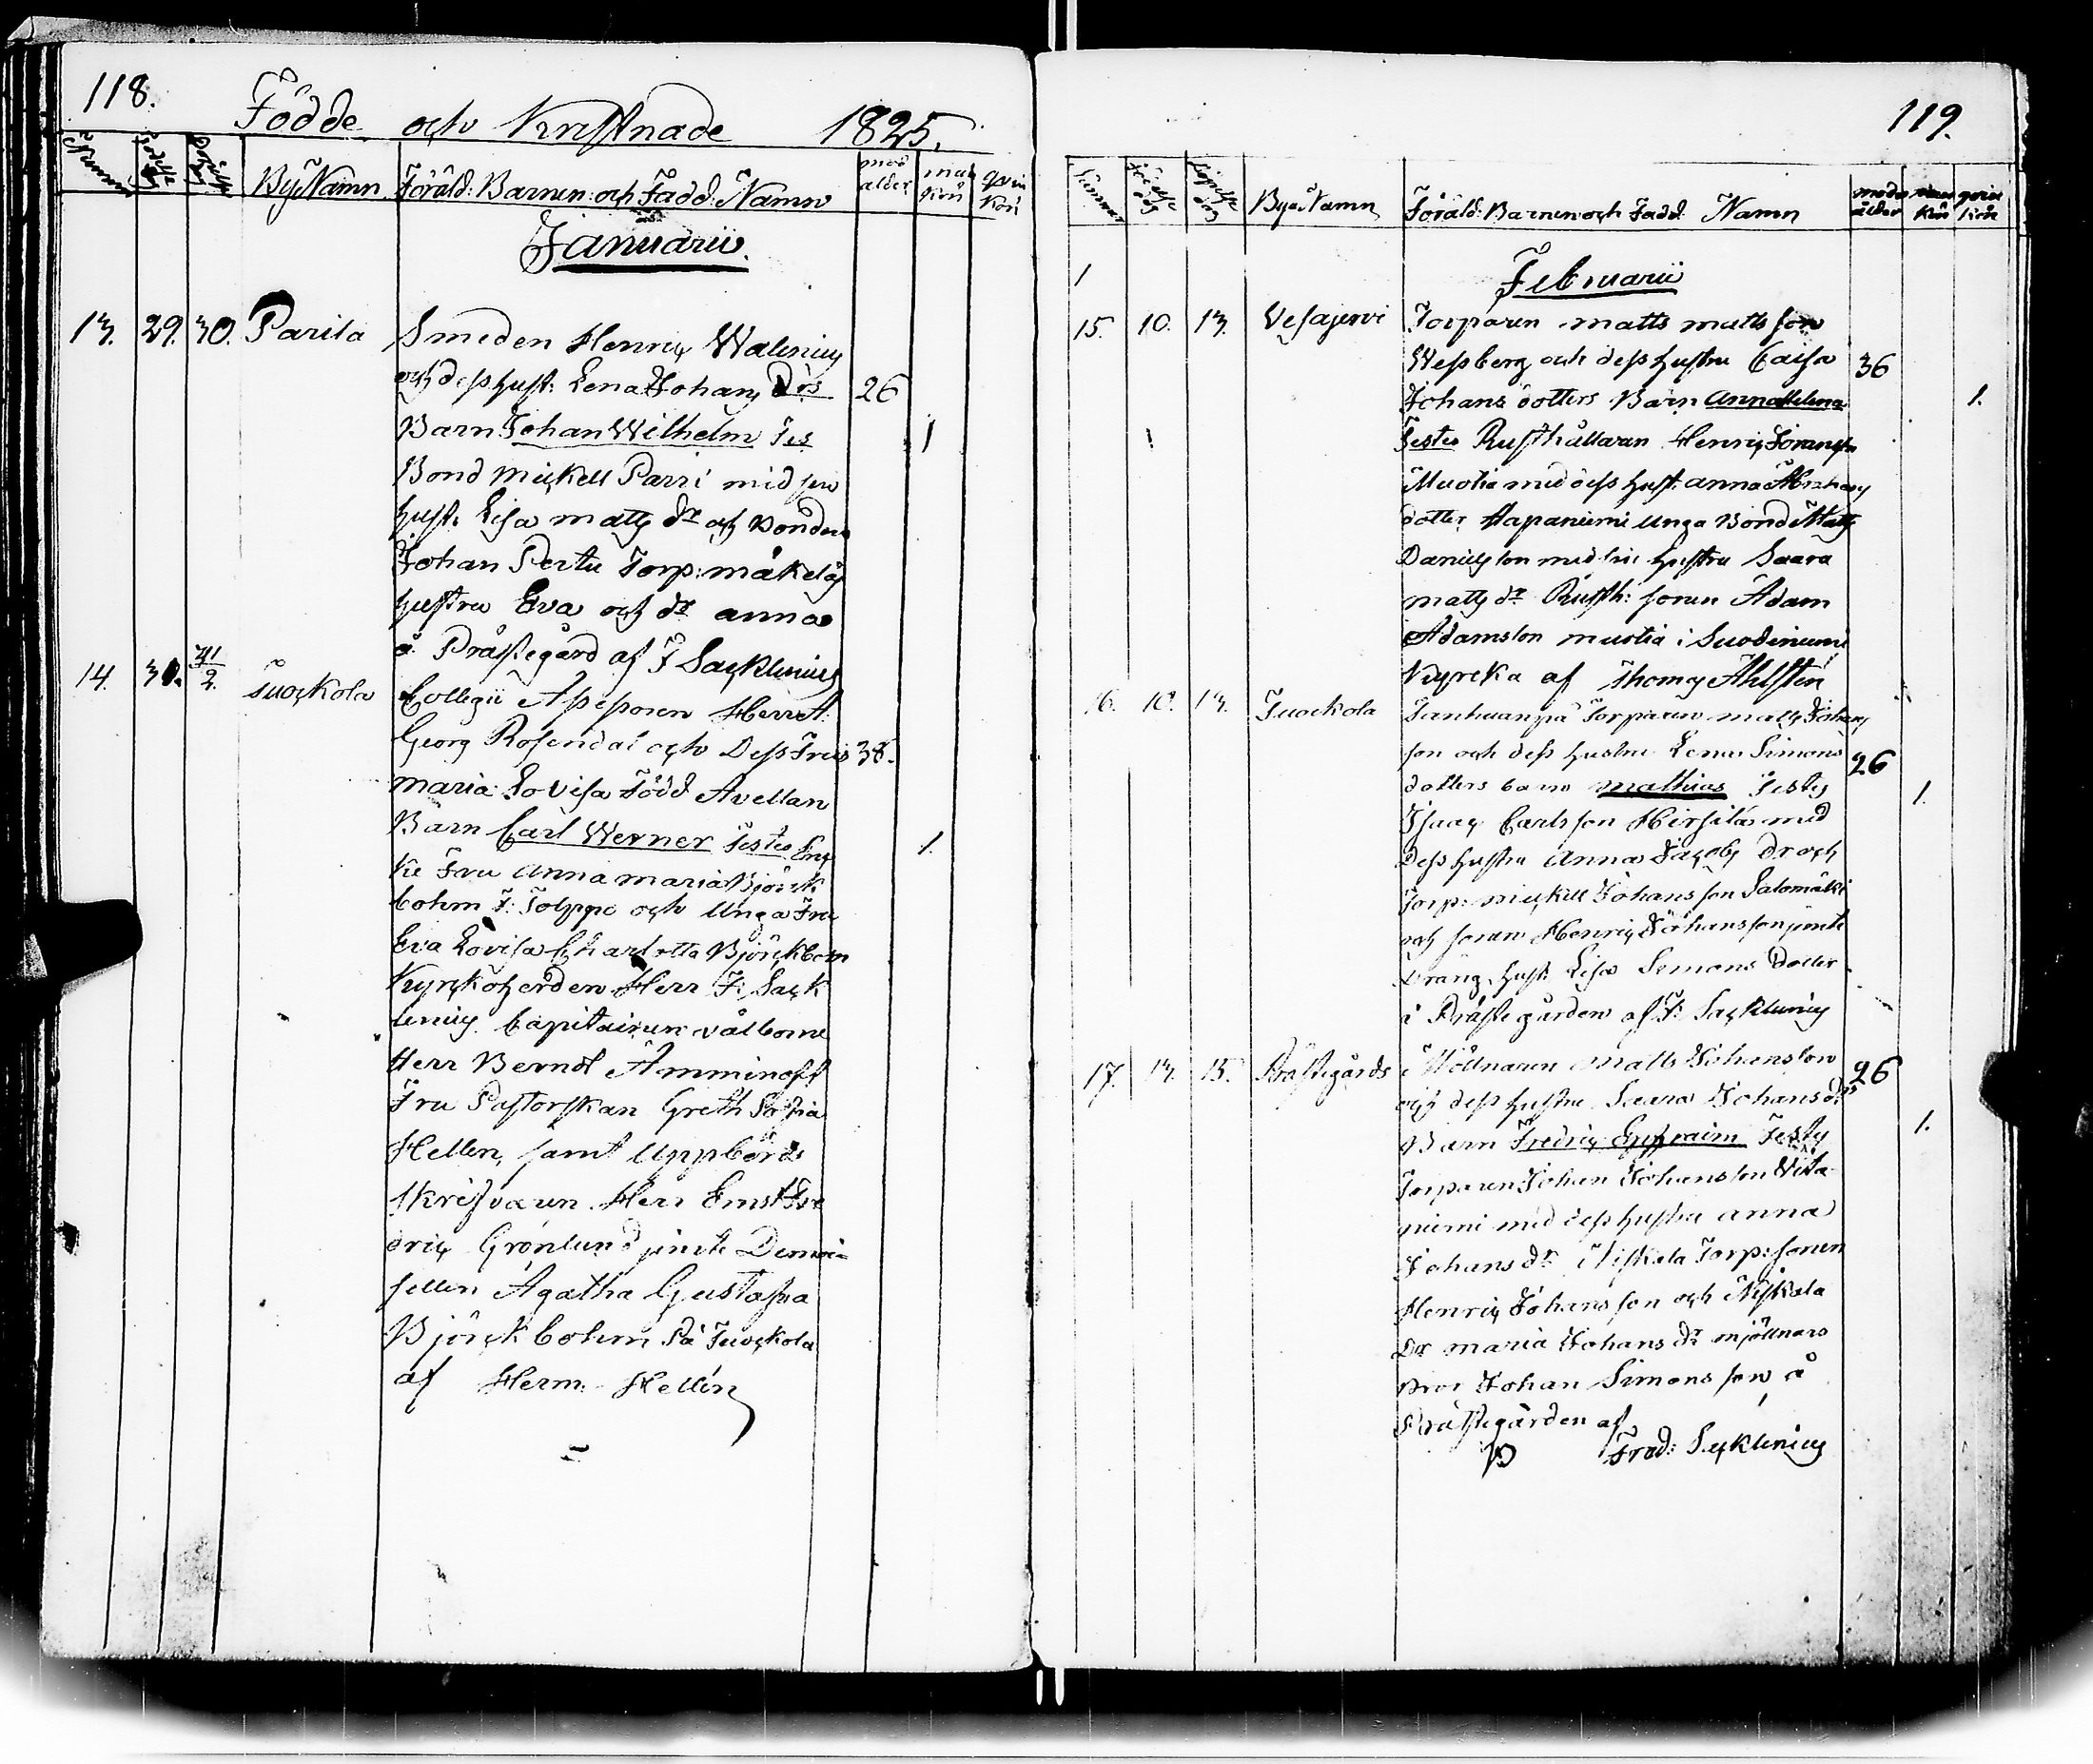 118.
Födde och Kristnade 1825.
Nummer Födelse dag Döpelse dag By Namn Föräld: Barnen: och Fadd: Namn mod ålder man Kön qvin Kön
Januarii.
13. 29. 30. Parila Smeden Henric Walenius
och dess hust: Lena Johans Drs 26
Barn Johan Wilhelm Tes 1
Bond Mickell Parri med sin
hust. Lisa Matts dr och Bonden
Johan Pertu Torp: Mäkeläs
hustru Eva och dr Anna
å Prästegård af F Sacklinius
14. 30. 31/2. Juockola Collegii Assessoren Herr A:
Georg Rosendal och Dess Frus 38.
Maria Lovisa Född Avellan
Barn Carl Werner Testes Enc 1.
ke Fru Anna Maria Björck
bohm F: Tolppo och Unga Fru
Eva Lovisa Charlotta Björckbom
Kyrckoherden Herr F: Sack
linius Capitainen välborne
Herr Berndt Amminoff
Fru Pastorskan Greth Sofia
Hellen, samt Uppbörds
skrifvaren Herr Ernst Fre
dric Grönlund jemte Demoi-
sellen Agatha Gustafva
Björckbohm På Juockola
af Herm: Hellén
119.
Nummer Födelse dag Döpelse dag Bya Namn Föräld: Barnen och Fadd: Namn moder ålder man Kön qvin Kön
1 Februarii
15. 10. 13. Vesajervi Torparen Matts Mattsson
Wessberg och dess hustru Caisa 36
Johans dotters Barn Anna Helena 1.
Testes Rusthållaren Henric Göransson
Muotia med dess hust. Anna Abrahams
dotter Hapaniemi unga Bond Matts
Danielsson med sin hustru Saara
Matts dr Rusth: sonen Adam
Adamsson Muotia i Suodeniemi
Kyrcka af Thomas Ahlstén
16. 10. 13. Juockola Torparen Matts Johans
son och dess hustru Lena Simons 26
dotters barn Mathias Testes 1.
Isaac Carlsson Hirsilä med
dess hustru Anna Jacobs dr och
Torp: Mickell Johansson Salomäki
och sonen Henric Johansson jemte
Dräng. hust. Lisa Simons dotter
i Prästegården af F: Sacklinius
17. 13. 15. Prästegårds Möllnaren Matts Johansson 26
och dess hustru Saara Johans drs
Barn Fredric Ephraim Testes 1.
Torparen Johan Johansson Vita
niemi med dess hustru Anna
Johans dr Niskala Torp: sonen
Henric Johansson och Niskala
Dr Maria Johans dr mjöllnars
Bror Johan Simonsson å
Prästegården af
Fred: Sacklinius